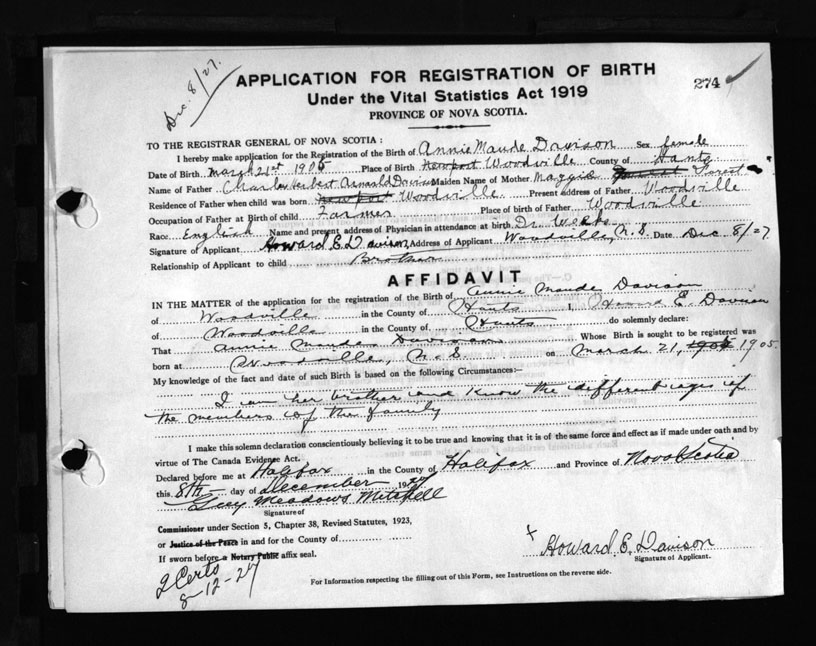 Dec. 8/27.
APPLICATION FOR REGISTRATION OF BIRTH
274
Under the Vital Statistics Act 1919
PROVINCE OF NOVA SCOTIA.
TO THE REGISTRAR GENERAL OF NOVA SCOTIA :
I hereby make application for the Registration of the Birth of Annie Maude Davison Sex female
Date of Birth March 21st 1905 Place of Birth Newport Woodville County of Hants
Name of Father Charles Herbert Arnold Davison Maiden Name of Mother Maggie
Residence of Father when child was born Newport Woodville Present address of Father Woodville
Occupation of Father at Birth of child Farmer Place of birth of Father Woodville
Race English Name and present address of Physician in attendance at birth Dr. Weeks
Signature of Applicant Howard E. Davison Address of Applicant Woodville, N.S. Date Dec. 8/27
Relationship of Applicant to child Brother
AFFIDAVIT
IN THE MATTER of the application for the registration of the Birth of Annie Maude Davison
of Woodville in the County of Hants I, Howard E. Davison
of Woodville in the County of Hants do solemnly declare:
That Annie Maude Davison Whose Birth is sought to be registered was
born at Woodville, N.S. on March 21, 1905.
My knowledge of the fact and date of such Birth is based on the following Circumstances:—
I am her brother and know the different ages of
the members of the family
I make this solemn declaration conscientiously believing it to be true and knowing that it is of the same force and effect as if made under oath and by
virtue of The Canada Evidence Act.
Declared before me at Halifax in the County of Halifax and Province of Nova Scotia
this 8th day of December 1927
Guy Meadows Mitchell
Signature of
Commissioner under Section 5, Chapter 38, Revised Statutes, 1923,
or Justice of the Peace in and for the County of
If sworn before a Notary Public affix seal.
x Howard E. Davison
Signature of Applicant.
2 Certs
8-12-27
For Information respecting the filling out of this Form, see Instructions on the reverse side.